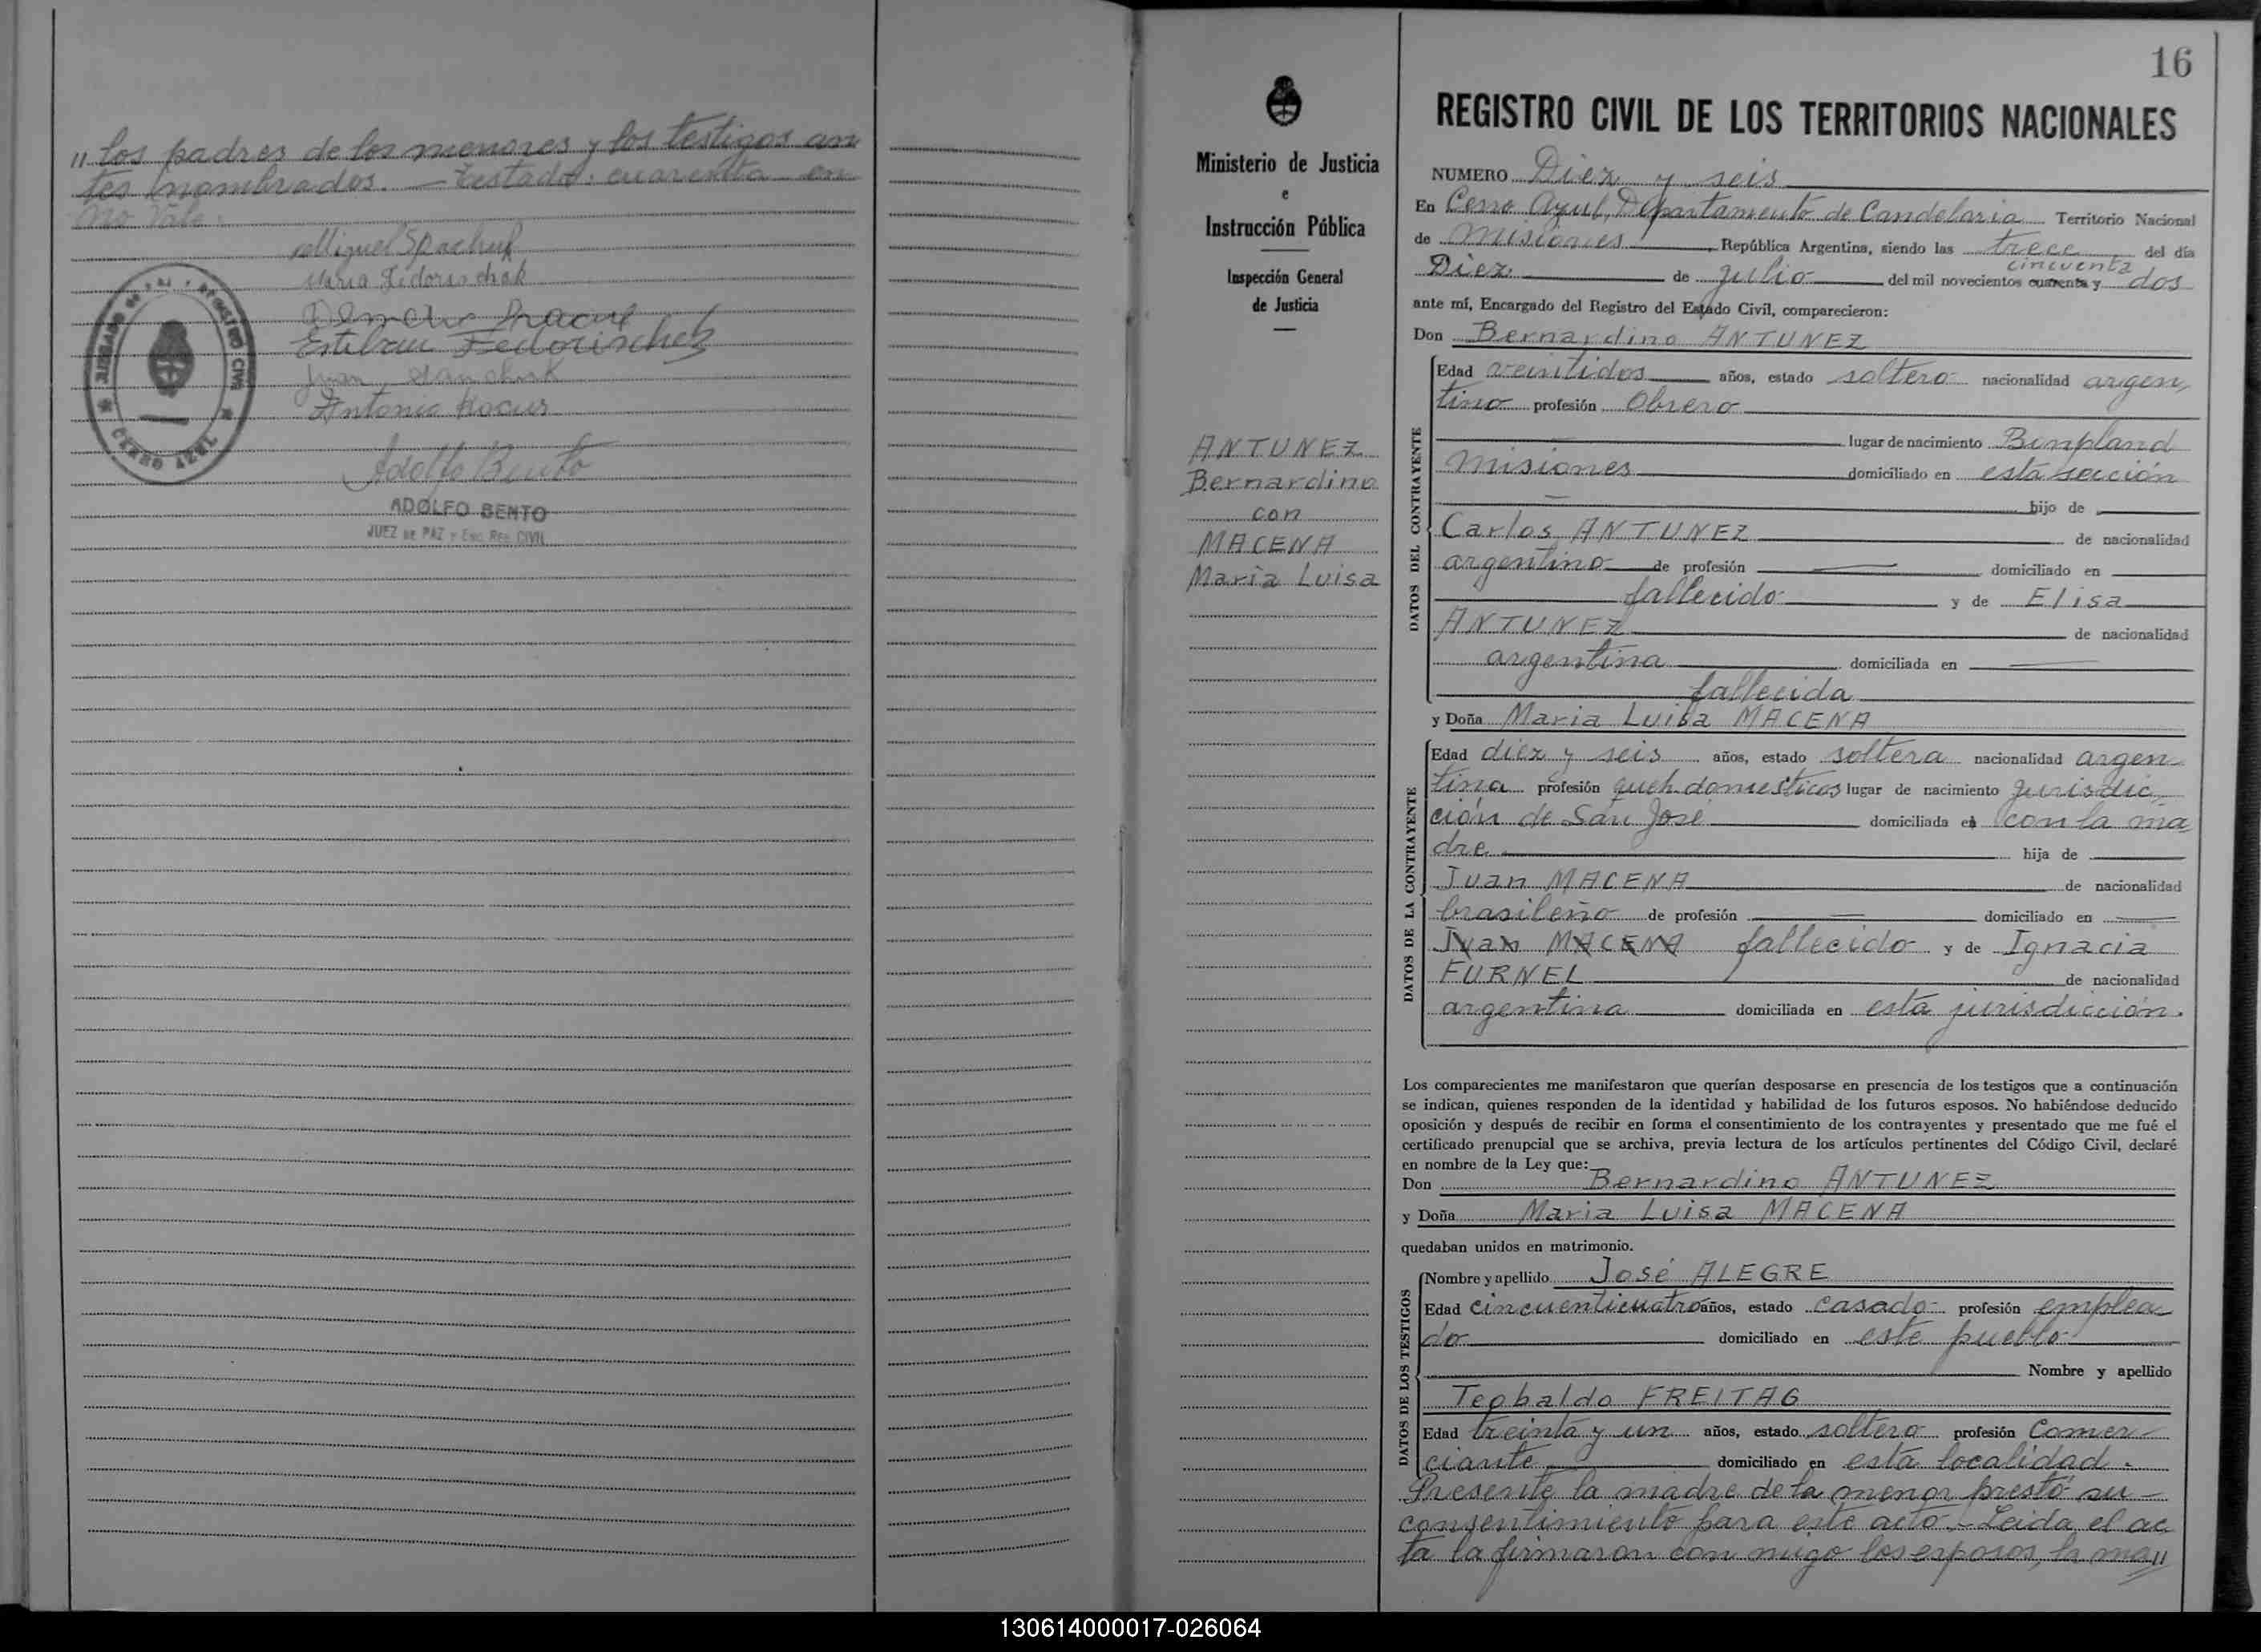 " los padres de los menores y los testigos an
tes nombrados. — Testado: cuarenta - en
no Vale.
Miguel Spachuk
Maria Fedorischak
Esteban Fedorischak
Juan
Antonio Kocur
Adolfo Bento
ADOLFO BENTO
JUEZ DE PAZ y Enc. Reg. CIVIL
JUZGADO DE PAZ Y REGISTRO CIVIL
CERRO AZUL
16
Ministerio de Justicia
e
Instrucción Pública
Inspección General
de Justicia
ANTUNEZ
Bernardino
con
MACENA
Maria Luisa
REGISTRO CIVIL DE LOS TERRITORIOS NACIONALES
NUMERO Diez y seis
En Cerro Azul, Departamento de Candelaria Territorio Nacional
de Misiones, República Argentina, siendo las trece del día
cincuenta
Diez de julio del mil novecientos cuarenta y dos
ante mí, Encargado del Registro del Estado Civil, comparecieron:
Don Bernardino ANTUNEZ
DATOS DEL CONTRAYENTE
Edad veintidos años, estado soltero nacionalidad argen
tino profesión Obrero
lugar de nacimiento Bonpland
Misiones domiciliado en esta sección
hijo de
Carlos ANTUNEZ de nacionalidad
argentino de profesión — domiciliado en
fallecido y de Elisa
ANTUNEZ de nacionalidad
argentina domiciliada en —
fallecida
y Doña Maria Luisa MACENA
DATOS DE LA CONTRAYENTE
Edad diez y seis años, estado soltera nacionalidad argen-
tina profesión queh. domesticos lugar de nacimiento Jurisdic-
ción de San José domiciliada en con la ma
dre hija de
Juan MACENA de nacionalidad
brasileño de profesión — domiciliado en —
Juan MACENA fallecido y de Ignacia
FURNEL de nacionalidad
argentina domiciliada en esta jurisdicción.
Los comparecientes me manifestaron que querían desposarse en presencia de los testigos que a continuación
se indican, quienes responden de la identidad y habilidad de los futuros esposos. No habiéndose deducido
oposición y después de recibir en forma el consentimiento de los contrayentes y presentado que me fué el
certificado prenupcial que se archiva, previa lectura de los artículos pertinentes del Código Civil, declaré
en nombre de la Ley que:
Don Bernardino ANTUNEZ
y Doña Maria Luisa MACENA
quedaban unidos en matrimonio.
DATOS DE LOS TESTIGOS
Nombre y apellido José ALEGRE
Edad cincuenticuatro años, estado casado profesión emplea
do domiciliado en este pueblo
Nombre y apellido
Teobaldo FREITAG
Edad treinta y un años, estado soltero profesión Comer-
ciante domiciliado en esta localidad.
Presente la madre de la menor prestó su-
consentimiento para este acto.- Leida el ac
ta la firmaron con migo los esposos, la ma"
130614000017-026064